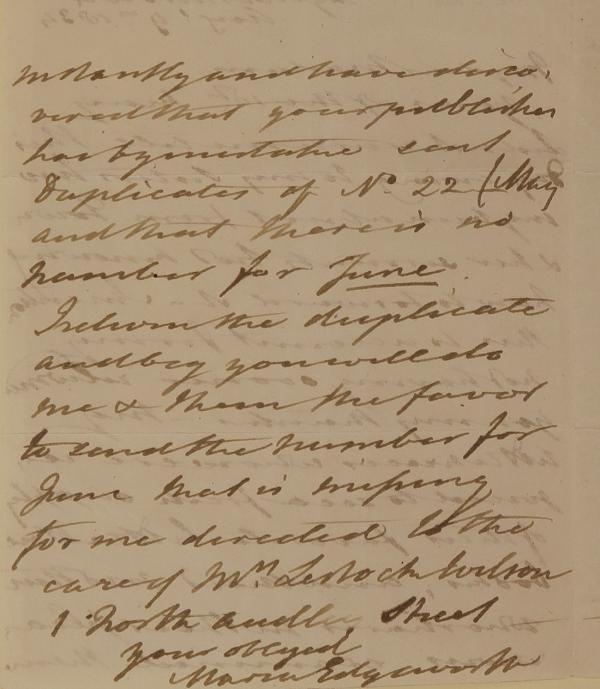 instantly and have disco
vered that your publisher
has by mistake sent
Duplicates of No. 22 (May
and that there is no
number for June.
I return the duplicate
and beg you will do
me & them the favor
to send the number for
June that is missing
for me directed to the
care of Mrs Lestock Wilson
1 North Audley Street
your obliged
Maria Edgeworth